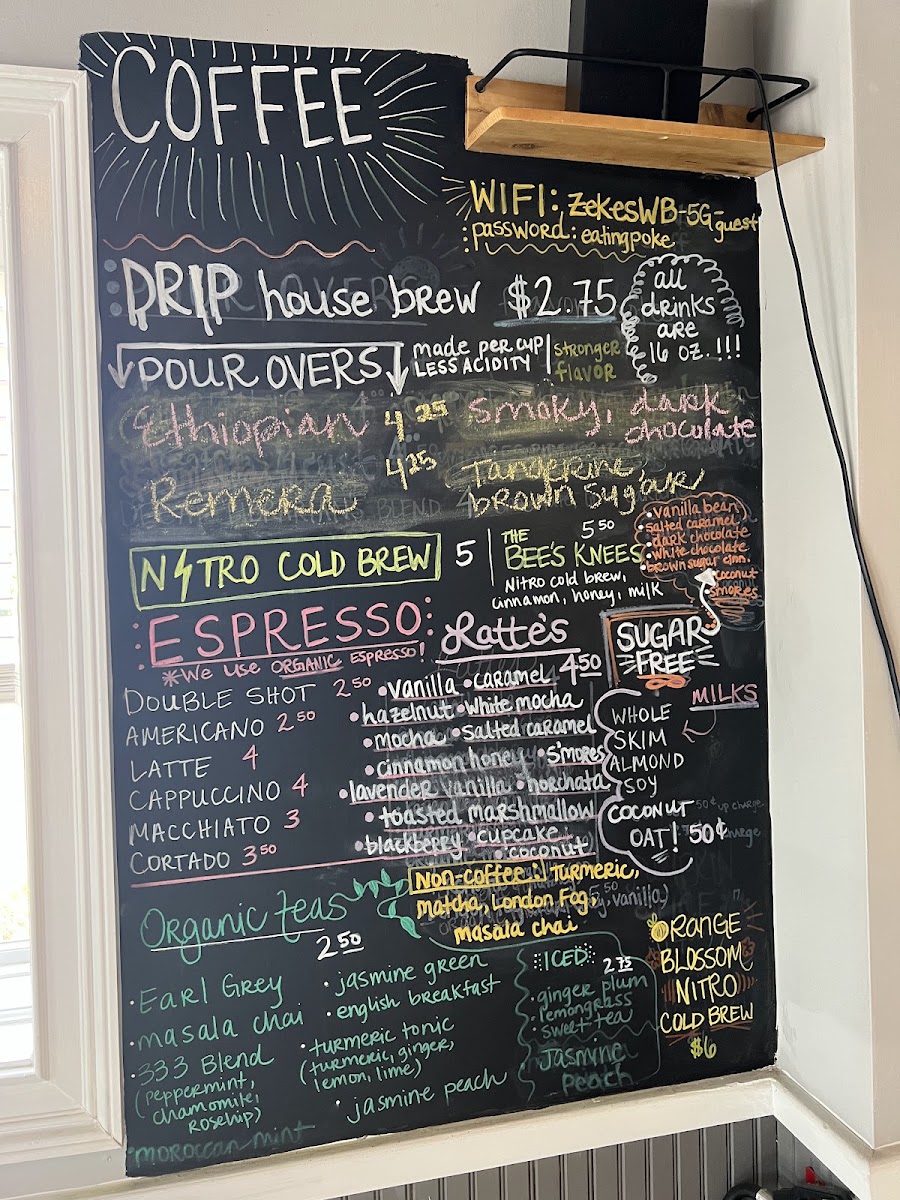 COFFEE
WIFI: ZekesWB-5G-guest
password: eatingpoke
DRIP house brew $2.75
all
drinks
are
16 oz. !!!
POUR OVERS
made per cup
LESS ACIDITY
stronger
flavor
Ethiopian 4.25 smoky, dark
chocolate
Remera 4.25 Tangerine,
brown sugar
NITRO COLD BREW 5
THE
BEE'S KNEES 5.50
Nitro cold brew,
cinnamon, honey, milk
• vanilla bean
salted caramel
dark chocolate
• white chocolate
brown sugar cinn.
coconut
smores
SUGAR
FREE
ESPRESSO
*We use ORGANIC Espresso!
DOUBLE SHOT 2.50
AMERICANO 2.50
LATTE 4
CAPPUCCINO 4
MACCHIATO 3
CORTADO 3.50
Latte's 4.50
• vanilla • caramel
• hazelnut • white mocha
• mocha • salted caramel
• cinnamon honey • s'mores
• lavender vanilla • horchata
• toasted marshmallow
• blackberry • cupcake
• coconut
MILKS
WHOLE
SKIM
ALMOND
SOY
COCONUT
OAT! 50¢
Non-coffee: Turmeric,
matcha, London Fog,
masala chai
Organic teas
2.50
• Earl Grey
• masala chai
• 333 Blend
(peppermint,
chamomile,
rosehip)
• moroccan mint
• jasmine green
• english breakfast
• turmeric tonic
(turmeric, ginger,
lemon, lime)
• jasmine peach
ICED 2.75
• ginger plum
• lemongrass
• sweet tea
Jasmine
Peach
ORANGE
BLOSSOM
NITRO
COLD BREW
$6